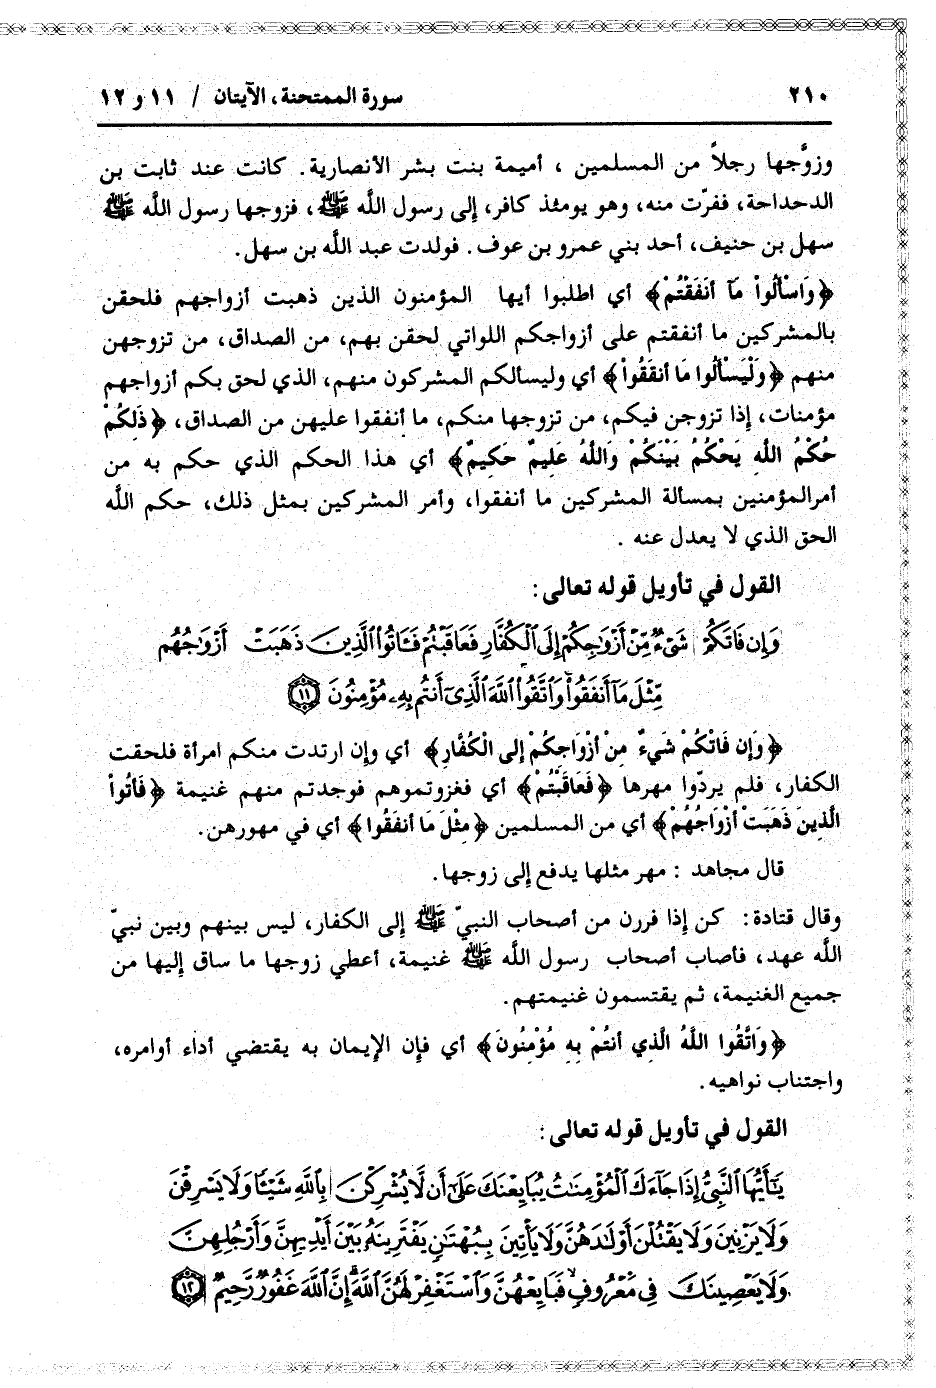 ٢١٠ سورة الممتحنة، الآيتان / ١١ و ١٢
وزوَّجها رجلاً من المسلمين ، أميمة بنت بشر الأنصارية. كانت عند ثابت بن
الدحداحة، ففرّت منه، وهو يومئذ كافر، إلى رسول اللَّه ﷺ، فزوجها رسول اللَّه ﷺ
سهل بن حنيف، أحد بني عمرو بن عوف. فولدت عبد اللَّه بن سهل.
﴿وَاسْأَلُواْ مَآ أَنفَقْتُمْ﴾ أي اطلبوا أيها المؤمنون الذين ذهبت أزواجهم فلحقن
بالمشركين ما أنفقتم على أزواجكم اللواتي لحقن بهم، من الصداق، من تزوجهن
منهم ﴿وَلْيَسْأَلُوا مَا أَنفَقُواْ﴾ أي وليسألكم المشركون منهم، الذي لحق بكم أزواجهم
مؤمنات، إذا تزوجن فيكم، من تزوجها منكم، ما أنفقوا عليهن من الصداق، ﴿ذَلِكُمْ
حُكْمُ اللَّهِ يَحْكُمُ بَيْنَكُمْ وَاللَّهُ عَلِيمٌ حَكِيمٌ﴾ أي هذا الحكم الذي حكم به من
أمرالمؤمنين بمسألة المشركين ما أنفقوا، وأمر المشركين بمثل ذلك، حكم اللَّه
الحق الذي لا يعدل عنه .
القول في تأويل قوله تعالى:
وَإِن فَاتَكُمْ شَىْءٌ مِّنْ أَزْوَٰجِكُمْ إِلَى ٱلْكُفَّارِ فَعَاقَبْتُمْ فَـَٔاتُوا۟ ٱلَّذِينَ ذَهَبَتْ أَزْوَٰجُهُم
مِّثْلَ مَآ أَنفَقُوا۟ وَٱتَّقُوا۟ ٱللَّهَ ٱلَّذِىٓ أَنتُم بِهِۦ مُؤْمِنُونَ ١١
﴿وَإِن فَاتَكُمْ شَيءٌ مِنْ أَزْوَاجِكُمْ إلى الْكُفَّارِ﴾ أي وإن ارتدت منكم امرأة فلحقت
الكفار، فلم يردّوا مهرها ﴿فَعَاقَبْتُمْ﴾ أي فغزوتموهم فوجدتم منهم غنيمة ﴿فَآتُواْ
الَّذِينَ ذَهَبَتْ أَزْوَاجُهُمْ﴾ أي من المسلمين ﴿مِثْلَ مَا أَنفَقُوا﴾ أي في مهورهن.
قال مجاهد : مهر مثلها يدفع إلى زوجها.
وقال قتادة: كن إذا فررن من أصحاب النبيّ ﷺ إلى الكفار، ليس بينهم وبين نبيّ
اللَّه عهد، فأصاب أصحاب رسول اللَّه ﷺ غنيمة، أعطي زوجها ما ساق إليها من
جميع الغنيمة، ثم يقتسمون غنيمتهم.
﴿وَاتَّقُوا اللَّهَ الَّذِي أنتُمْ بِهِ مُؤْمِنُونَ﴾ أي فإن الإيمان به يقتضي أداء أوامره،
واجتناب نواهيه.
القول في تأويل قوله تعالى:
يَـٰٓأَيُّهَا ٱلنَّبِىُّ إِذَا جَآءَكَ ٱلْمُؤْمِنَـٰتُ يُبَايِعْنَكَ عَلَىٰٓ أَن لَّا يُشْرِكْنَ بِٱللَّهِ شَيْـًٔا وَلَا يَسْرِقْنَ
وَلَا يَزْنِينَ وَلَا يَقْتُلْنَ أَوْلَـٰدَهُنَّ وَلَا يَأْتِينَ بِبُهْتَـٰنٍ يَفْتَرِينَهُۥ بَيْنَ أَيْدِيهِنَّ وَأَرْجُلِهِنَّ
وَلَا يَعْصِينَكَ فِى مَعْرُوفٍ ۙ فَبَايِعْهُنَّ وَٱسْتَغْفِرْ لَهُنَّ ٱللَّهَ ۖ إِنَّ ٱللَّهَ غَفُورٌ رَّحِيمٌ ١٢